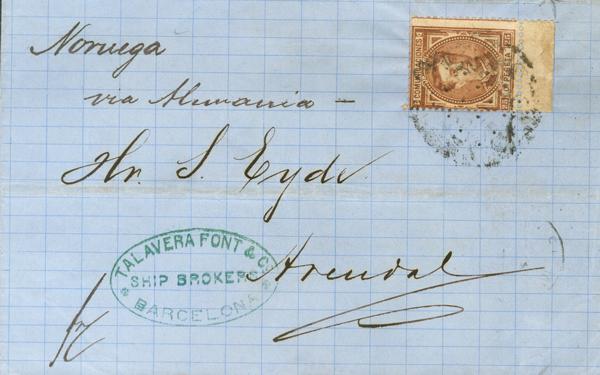 Noruega
via Alemania –
Hr. S. Eyde
Arendal
TALAVERA FONT & Cº
SHIP BROKERS
BARCELONA
COMUNICACIONES